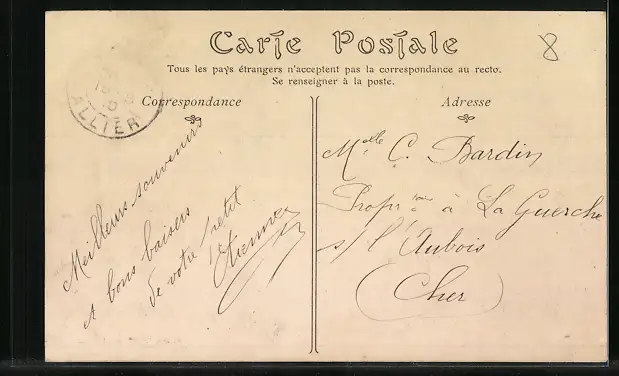 Carte Postale
8
Tous les pays étrangers n'acceptent pas la correspondance au recto.
Se renseigner à la poste.
ALLIER
Correspondance
Meilleurs souvenirs
et bons baisers
de votre petit
Etienne
Adresse
Melle C. Bardin
Propre à La Guerche
s/ l'Aubois
(Cher)